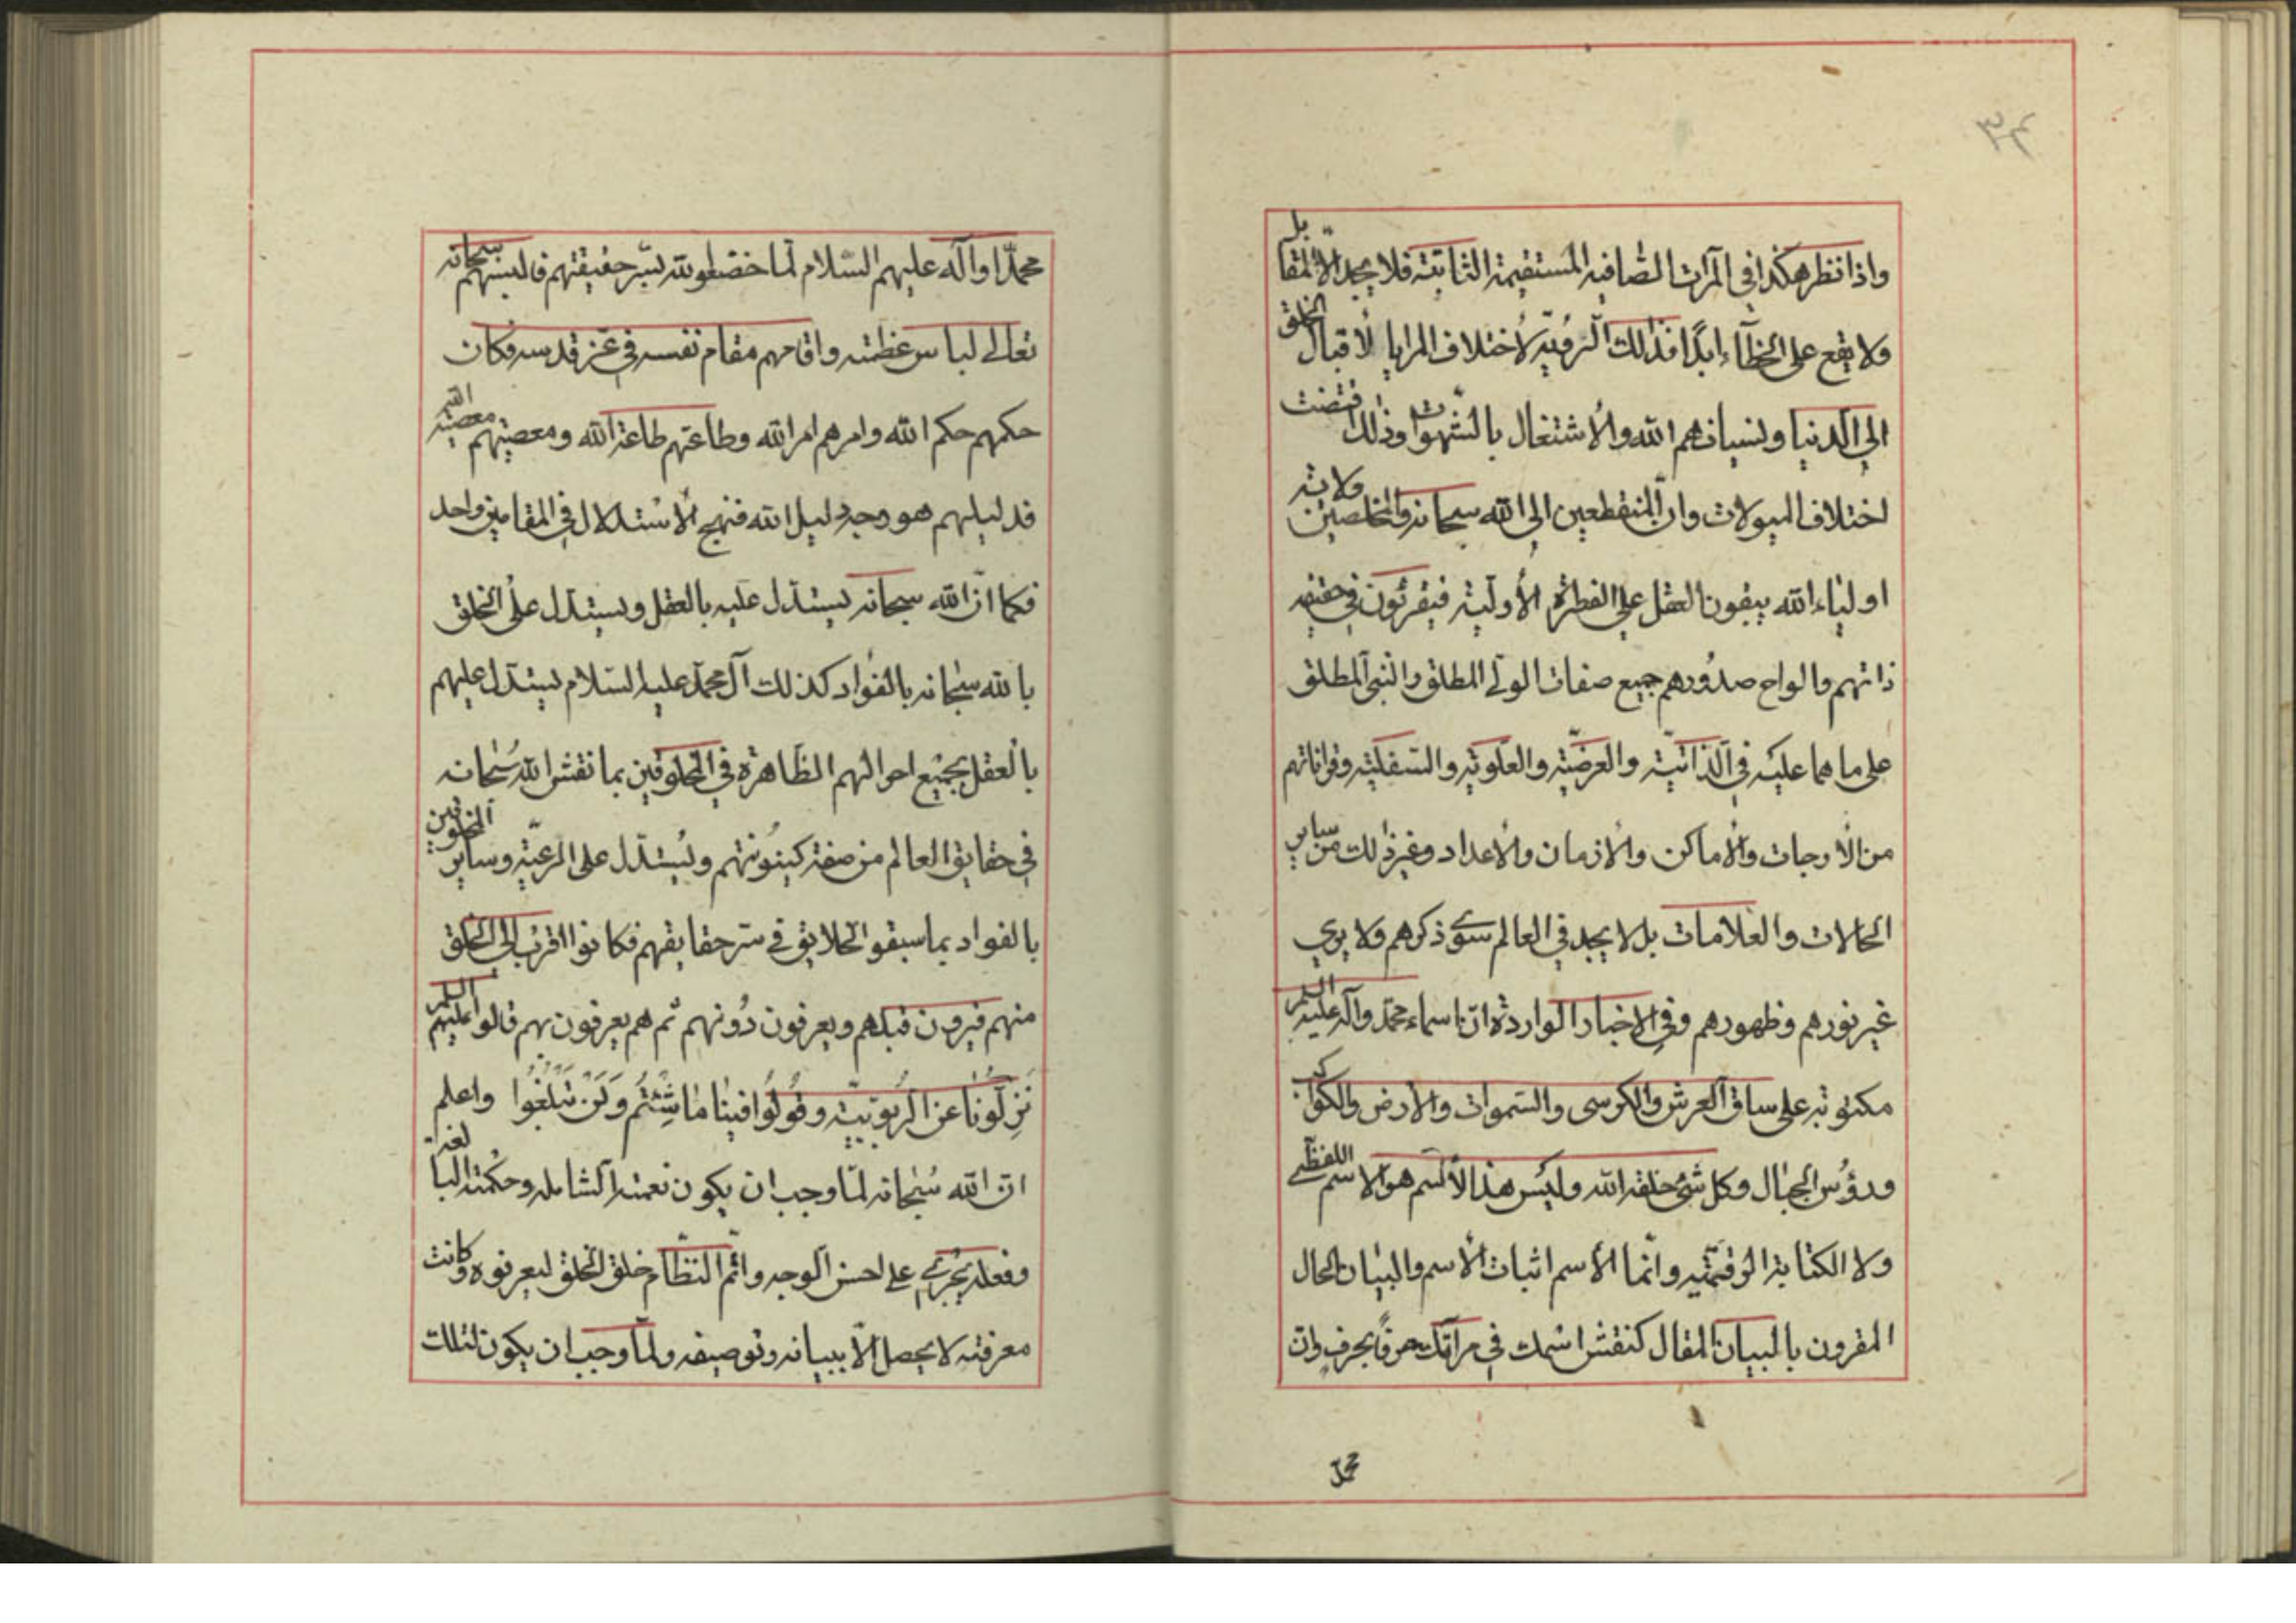 ٣٤
واذا نظر هكذا في المرآت الصّافيه المستقيمة الثابتة فلا يجد الّا المقابل
ولا يقع على الخطآء ابدًا فذلك الرؤية لاختلاف المرايا لاقبال الخلق
الى الدنيا ونسيانهم الله والاشتغال بالشّهوات وذلك فتضت
اختلاف الميولات وانّ المنقطعين الى الله سبحانه والمخلصين ولايته
اولياء الله يبقون العقل على الفطرة الأولية فيقرئون في حقيقه
ذاتهم والواح صدورهم جميع صفات الولي المطلق والنبي المطلق
على ما هما عليه في الذاتيّة والعرضيّة والعلويّه والسفليّه وقراناتهم
من الأوجات والأماكن والازمان والأعداد وغير ذلك من ساير
الحالات والعلامات بل لا يجد في العالم سوى ذكرهم ولا يرى
غير نورهم وظهورهم وفي الاخبار الواردة انّ اسماء محمّد وآله عليهم السلم
مكتوبة على ساق العرش والكرسى والسّموات والأرض والكواكب
ورؤس الجبال وكل شئ خلقه الله وليس هذا الأسم هو الاسم اللفظي
ولا الكتابة الرقميّه وانّما الأسم اثبات الأسم والبيان الحال
المقرون بالبيان المقال كنقش اسمك في مرآتك حرفًا بحرف وانّ
محمّد
محمّدًا وآله عليهم السّلام لمّا خضعوا لله بسرّ حقيقتهم فالبسهم سبحانه
تعالى لباس عظمته واقامهم مقام نفسه في عزّ قدسه فكان
حكمهم حكم الله وامرهم امر الله وطاعتهم طاعة الله ومعصيتهم معصية الله
فدليلهم هو وجه دليل الله فنهج الاستدلال في المقامين واحد
فكما انّ الله سبحانه يستدل عليه بالعقل ويستدل على الخلق
بالله سبحانه بالفؤاد كذلك آل محمد عليه السّلام يستدل عليهم
بالعقل بجميع احوالهم الظاهرة في المخلوقين بما نقش الله سبحانه
في حقايق العالم من صفة كينونتهم ويستدل على الرعيّة وساير المخلوقين
بالفواد بما سبقوا الخلايق في سرّ حقايقهم فكانوا اقرب الى الخلق
منهم فيرون قبلهم ويعرفون دونهم ثم هم يعرفون بهم قالوا عليهم السلم
نزلونا عن الربوبيّة وقولوا فينا ما شئتم ولن تبلغوا واعلم
انّ الله سبحانه لمّا وجب ان يكون نعمته الشامله وحكمته البالغة
وفعله يجرى على احسن الوجه واتم النظام خلق الخلق ليعرفوه وكانت
معرفته لا يحصل الّا ببيانه وتوصيفه ولمّا وجب ان يكون لتلك